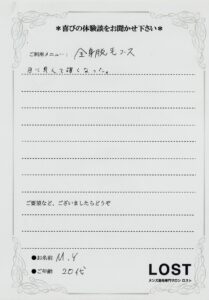 ＊喜びの体験談をお聞かせ下さい＊
ご利用メニュー： 全身脱毛コース
目で見えて薄くなった。
ご要望など、ございましたらどうぞ
●お名前 M.Y
●ご年齢 20代
LOST
メンズ脱毛専門サロン ロスト